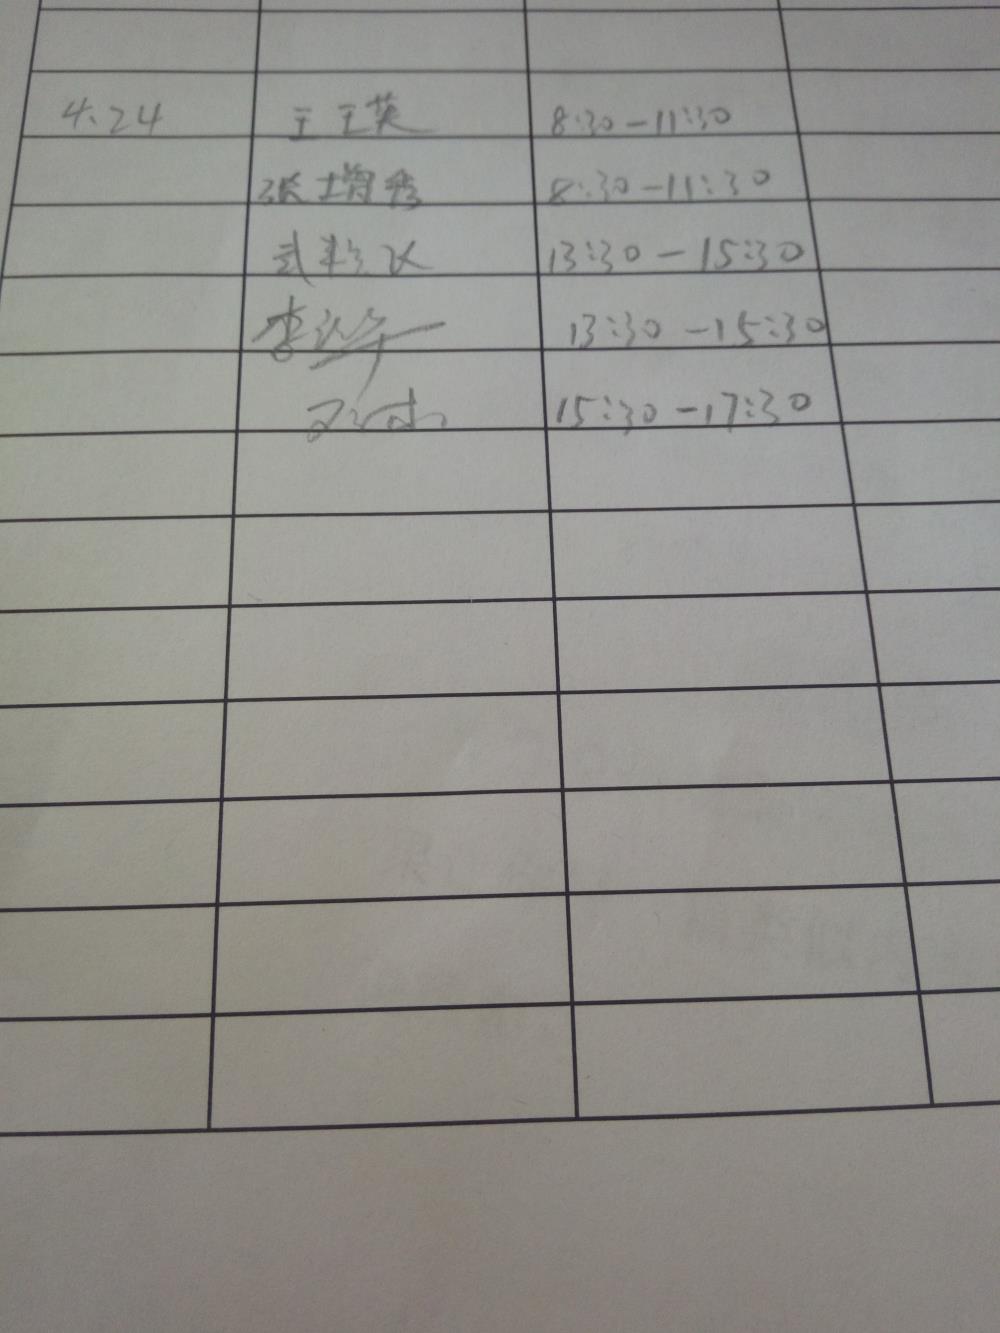 4.24 王玉英 8:30-11:30
张增秀 8:30-11:30
武 13:30-15:30
李 13:30-15:30
15:30-17:30